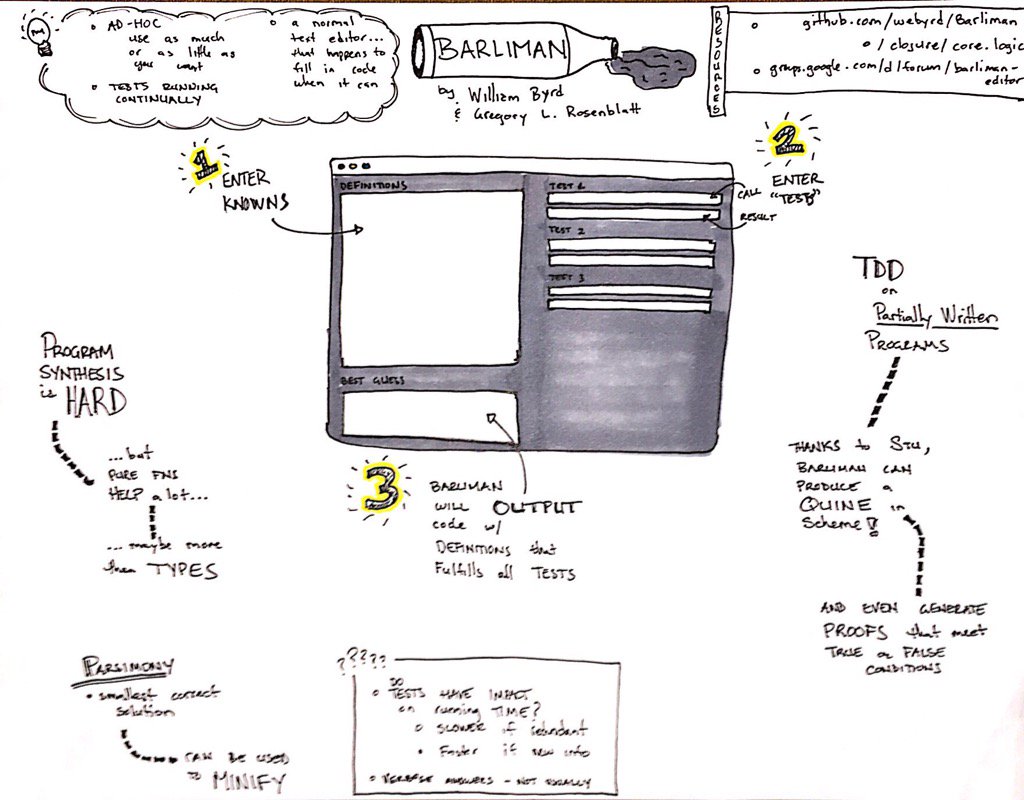 • AD-HOC
use as much
or as little as
you want
• TESTS RUNNING
CONTINUALLY
• a normal
text editor...
that happens to
fill in code
when it can
BARLIMAN
by William Byrd
& Gregory L. Rosenblatt
RESOURCES
• github.com/webyrd/Barliman
• /closure/core.logic
• groups.google.com/d/forum/barliman-
editor
1
ENTER
KNOWNS
2
ENTER
"TESTS"
DEFINITIONS
TEST 1
CALL
RESULT
TEST 2
TEST 3
BEST GUESS
3
BARLIMAN
WILL OUTPUT
code w/
DEFINITIONS that
Fulfills all TESTS
PROGRAM
SYNTHESIS
is HARD
...but
PURE FNS
HELP a lot...
...maybe more
than TYPES
TDD
on
Partially Written
PROGRAMS
THANKS to STU,
BARLIMAN CAN
PRODUCE a
QUINE in
Scheme!
AND EVEN GENERATE
PROOFS that meet
TRUE or FALSE
CONDITIONS
PARSIMONY
• smallest correct
solution
CAN BE USED
to MINIFY
?????
DO
• TESTS HAVE IMPACT
on running TIME?
• SLOWER if redundant
• Faster if new info
• VERBOSE ANSWERS - NOT USUALLY